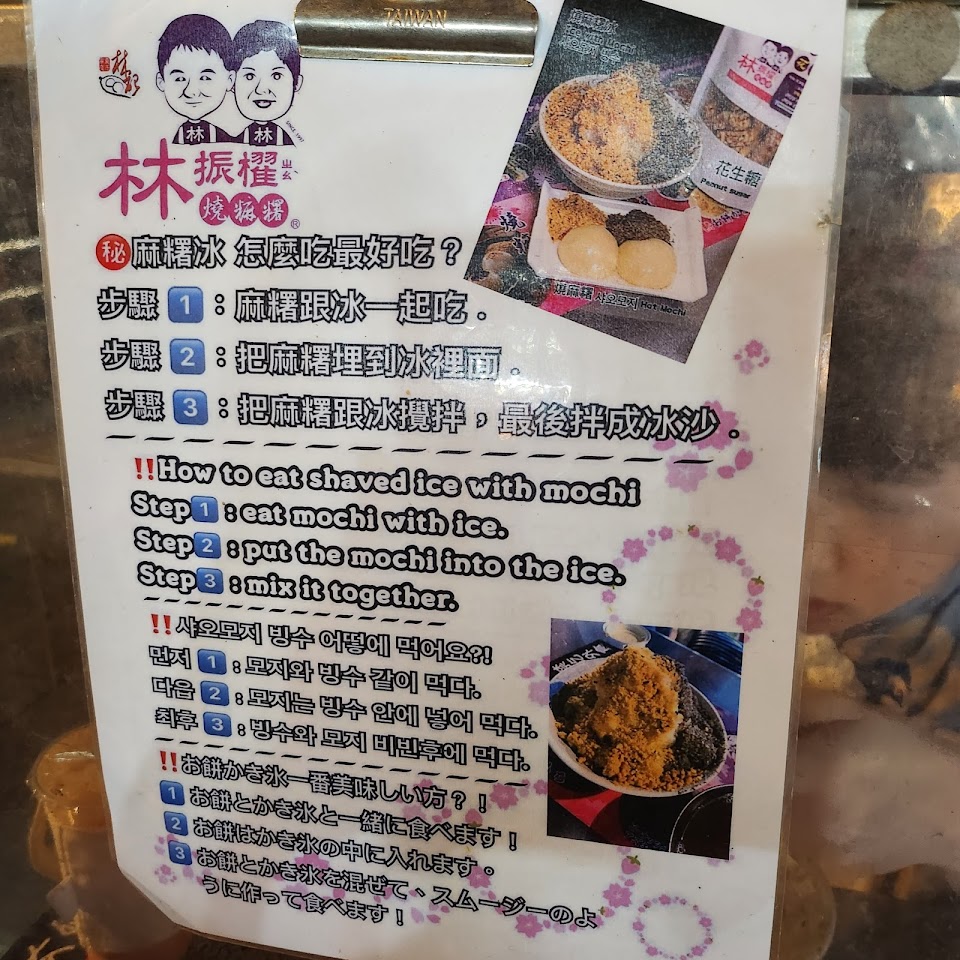 TAIWAN
林 林
SINCE 1997
林振櫂ㄓㄠˋ
燒麻糬®
花生糖
Peanut sugar
燒麻糬 샤오모지 Hot Mochi
㊙麻糬冰 怎麼吃最好吃？
步驟 1：麻糬跟冰一起吃．
步驟 2：把麻糬埋到冰裡面．
步驟 3：把麻糬跟冰攪拌，最後拌成冰沙．
‼How to eat shaved ice with mochi
Step1 : eat mochi with ice.
Step2 : put the mochi into the ice.
Step3 : mix it together.
‼샤오모지 빙수 어떻에 먹어요?!
먼저 1 : 모지와 빙수 같이 먹다.
다음 2 : 모지는 빙수 안에 넣어 먹다.
최후 3 : 빙수와 모지 비빈후에 먹다.
‼お餅かき氷一番美味しい方？！
1 お餅とかき氷と一緒に食べます！
2 お餅はかき氷の中に入れます。
3 お餅とかき氷を混ぜて、スムージーのよ
うに作って食べます！